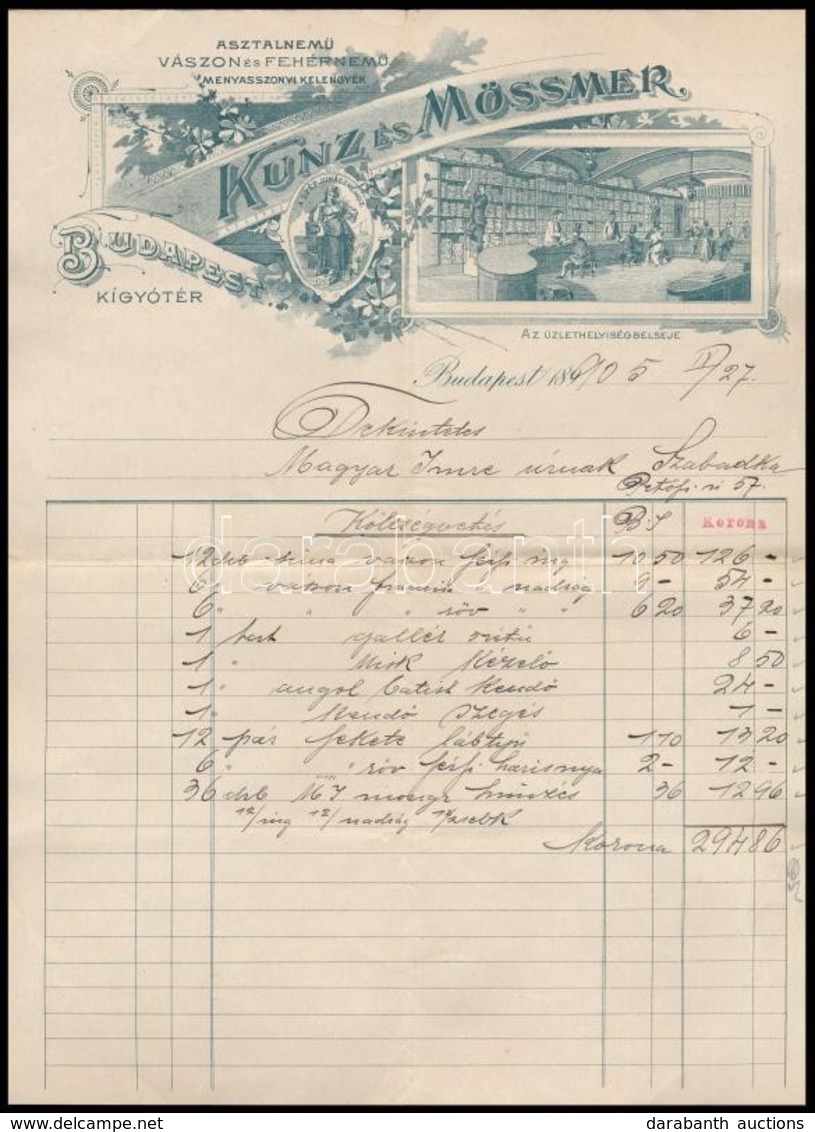 ASZTALNEMŰ
VÁSZON ÉS FEHÉRNEMŰ
MENYASSZONYI KELENGYÉK
KUNZ ÉS MÖSSMER
BUDAPEST.
KÍGYÓTÉR
AZ ÜZLETHELYISÉG BELSEJE
Budapest 1905 II/27.
Tekintetes
Magyar Imre úrnak Szabadka
Petőfi u 57.
Költségvetés Korona
12 drb vászon férfi ing 10 50 126 -
6 " vászon " nadrág 9 - 54 -
6 " " " röv " " 6 20 37 20
1 gallér 6 -
1 " Kézelő 8 50
1 " angol batist Kendő 24 -
1 " Kendő szegés 1 -
12 pár fekete 1 10 13 20
6 " " röv férfi harisnya 2 - 12 -
36 drb MI hímzés 36 12 96
12/ing 12/nadrág 12/zsebk
Korona 294 86
darabanth
darabanth auctions